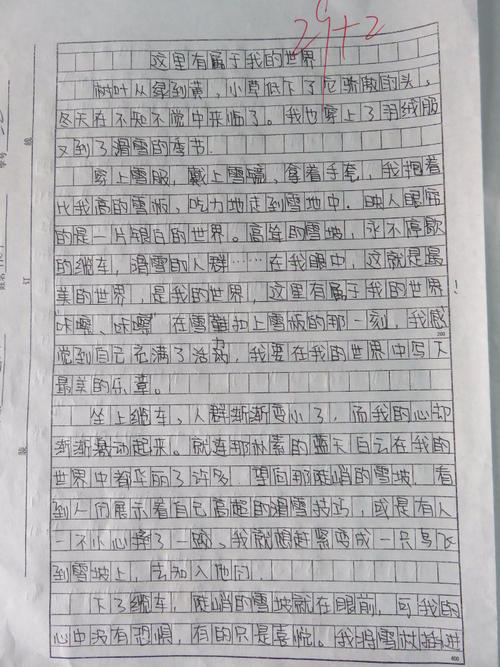 29+2
这里有属于我的世界
树叶从绿到黄，小草低下了它骄傲的头，
冬天在不知不觉中来临了。我也穿上了羽绒服
又到了滑雪的季节.
穿上雪服，戴上雪镜，拿着手套，我抱着
比我高的雪板，吃力地走到雪地中.映入眼帘
的是一片银白的世界。高耸的雪坡，永不停歇
的缆车，滑雪的人群……在我眼中，这就是最
美的世界，是我的世界，这里有属于我的世界！
"咔嚓、咔嚓"在雪鞋扣上雪板的那一刻，我感
200
觉到自己充满了活力，我要在我的世界中写下
最美的乐章。
坐上缆车，人群渐渐变小了，而我的心却
渐渐激动起来。就连那朴素的蓝天白云在我的
世界中都华丽了许多.望向那陡峭的雪坡.看
到人们展示着自己高超的滑雪技巧，或是有人
一不小心摔了一跤、我就想赶紧变成一只鸟飞
到雪坡上，去加入他们.
下了缆车，陡峭的雪坡就在眼前，可我的
心中没有恐惧，有的只是喜悦。我将雪杖插进
400